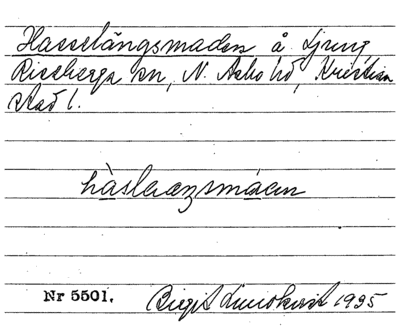 Hasselängsmaden å Ljung
Riseberga sn, N. Åsbo hd, Kristian
stad l.
hàslaŋsmáen
Nr 5501. Birgit Lundkvist 1935